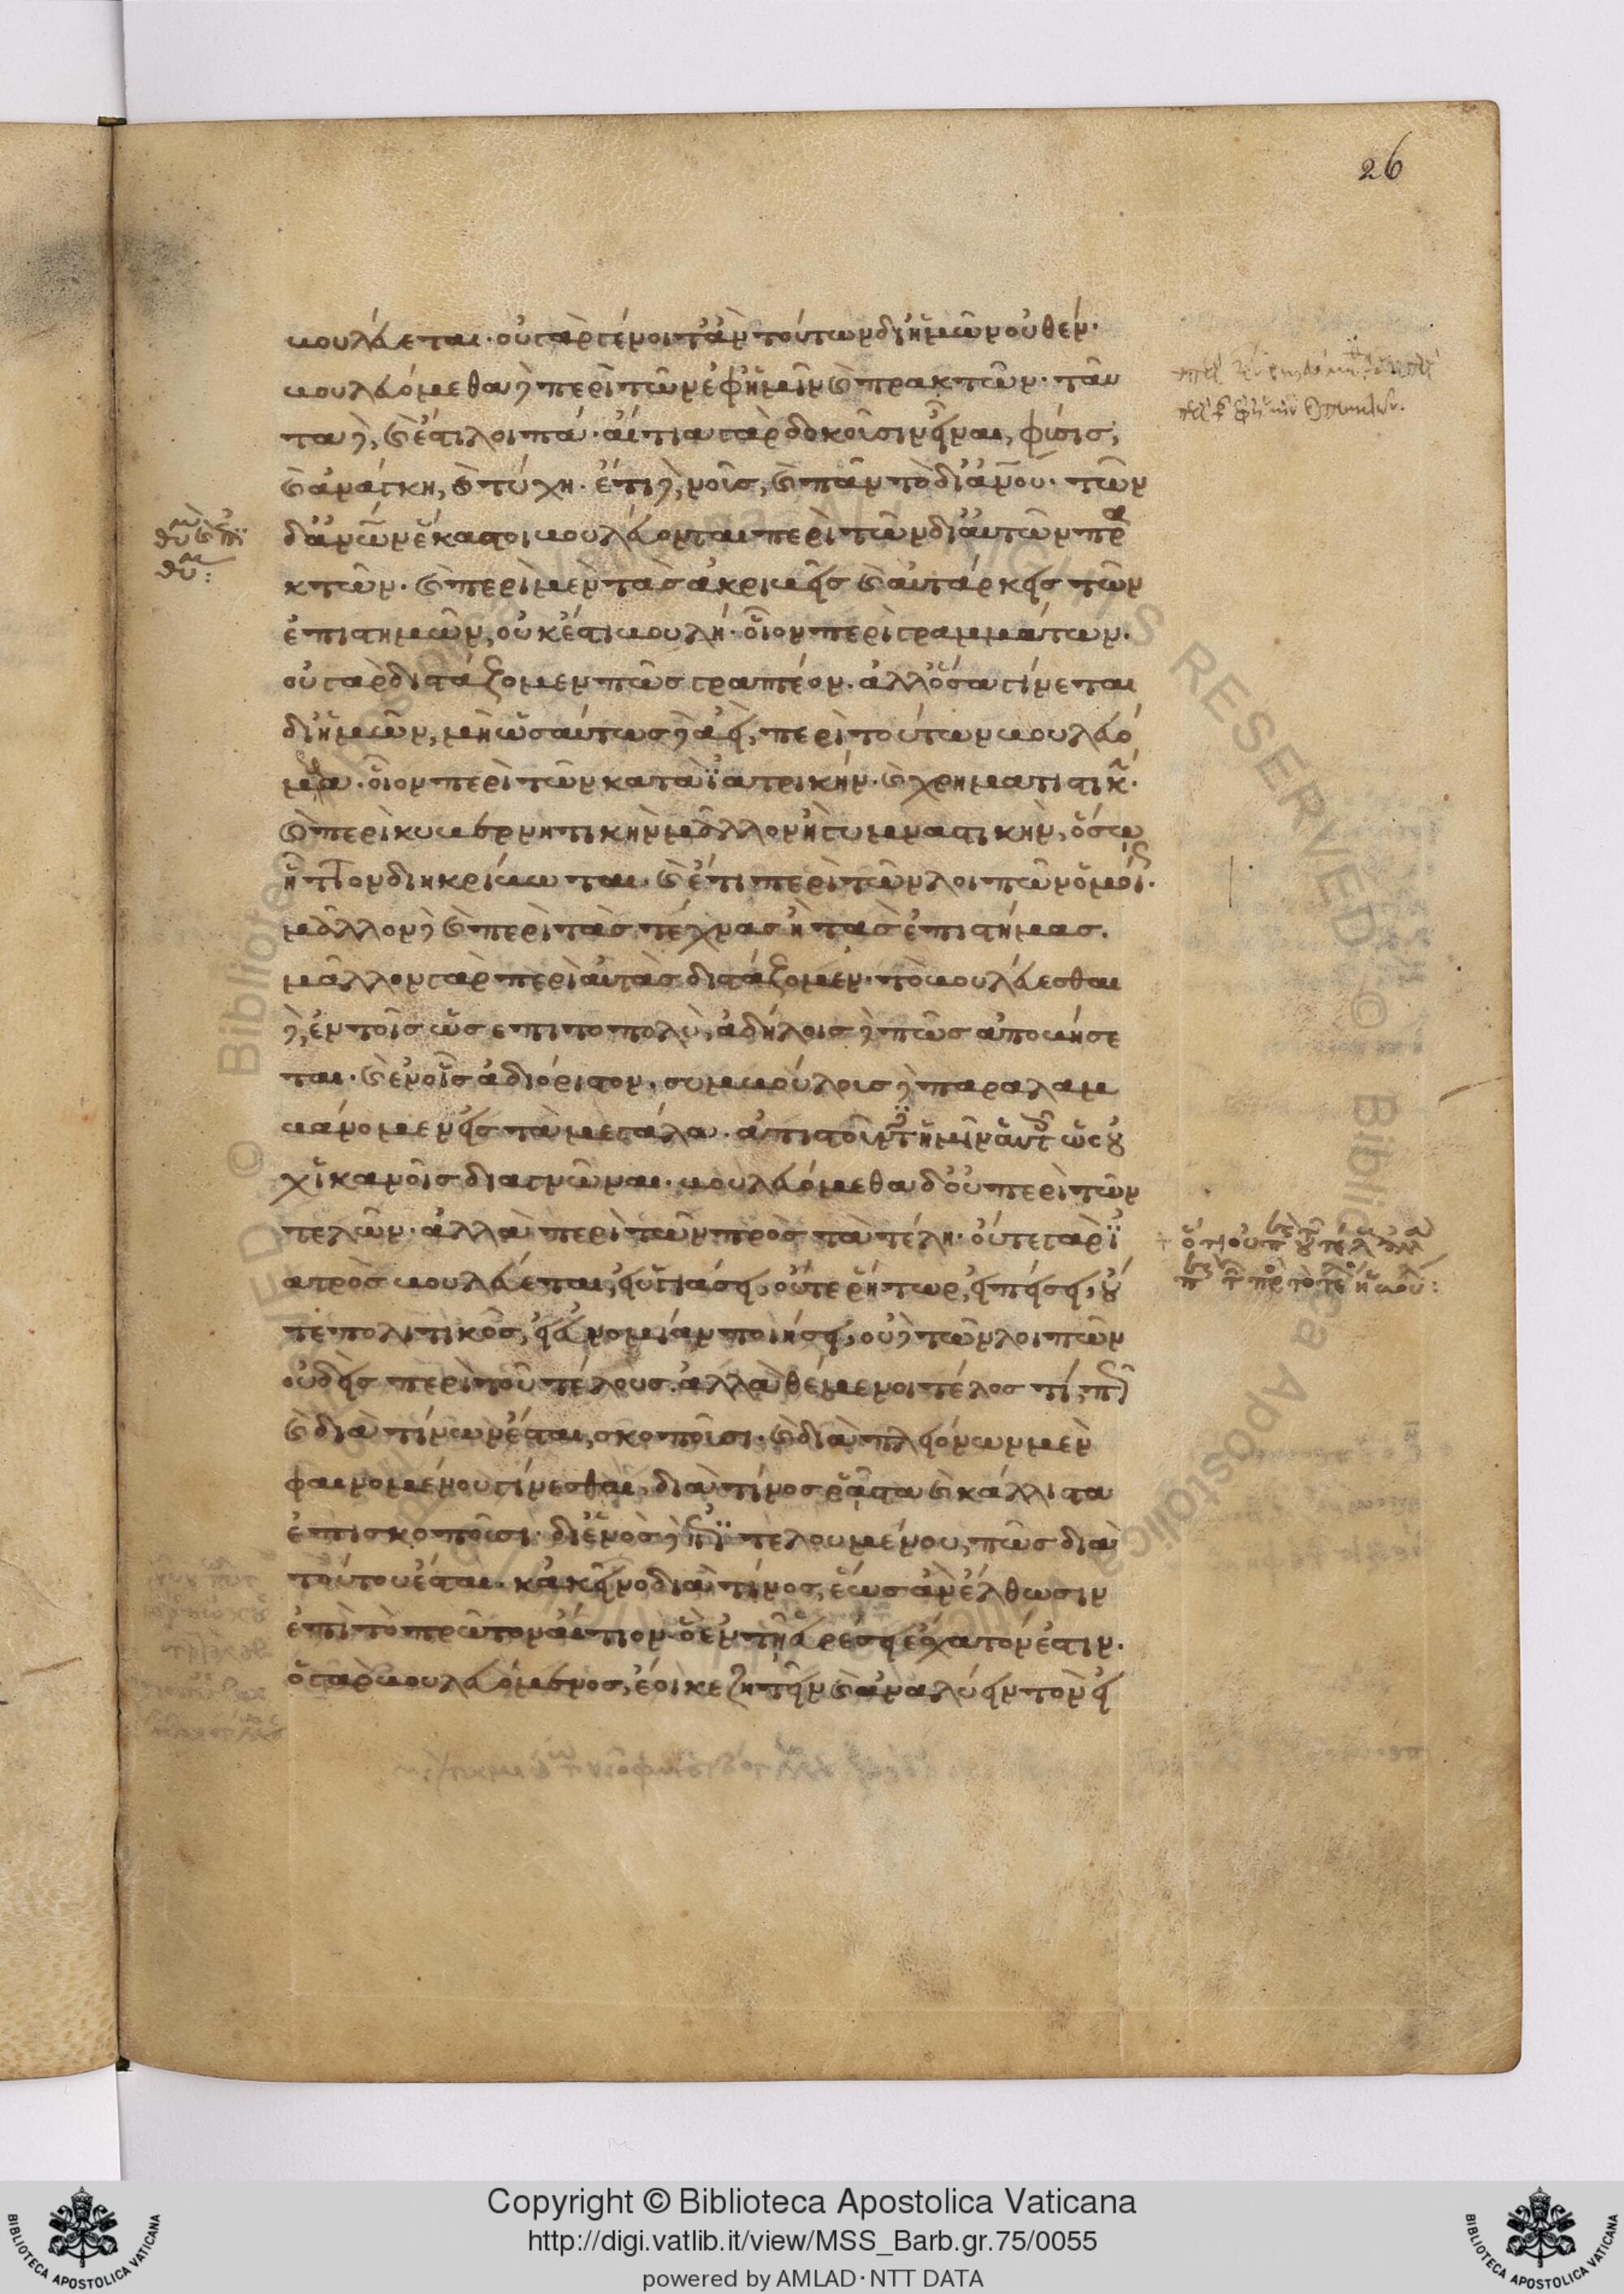 26
βουλεύεται· οὐ γὰρ γένοιτ' ἂν τούτων δι' ἡμῶν οὐθέν·
βουλευόμεθα δὲ περὶ τῶν ἐφ' ἡμῖν καὶ πρακτῶν· ταῦ
τα δὲ, καὶ ἔστι λοιπά· αἴτια γὰρ δοκοῦσιν εἶναι, φύσις,
καὶ ἀνάγκη, καὶ τύχη· ἔτι δὲ, νοῦς, καὶ πᾶν τὸ δι' ἀνου· τῶν
δ' ἀνων ἕκαστοι βουλεύονται περὶ τῶν δι' αὑτῶν πρα
κτῶν· καὶ περὶ μὲν τὰς ἀκριβεῖς καὶ αὐτάρκεις τῶν
ἐπιστημῶν, οὐκ ἔστι βουλή· οἷον περὶ γραμμάτων·
οὐ γὰρ διστάζομεν πῶς γραπτέον· ἀλλ' ὅσα γίνεται
δι' ἡμῶν, μὴ ὡσαύτως δ' ἀεὶ, περὶ τούτων βουλευό
μεθα· οἷον περὶ τῶν κατὰ ϊατρικήν· καὶ χρηματιστικ·
καὶ περὶ κυβερνητικὴν μᾶλλον ἢ γυμναστικὴν, ὅσω
ἧττον διηκρίβωται· καὶ ἔτι περὶ τῶν λοιπῶν ὁμοίως·
μᾶλλον δὲ καὶ περὶ τὰς τέχνας ἢ τὰς ἐπιστήμας.
μᾶλλον γὰρ περὶ αὐτὰς διστάζομεν· τὸ βουλεύεσθαι
δὲ, ἐν τοῖς ὡς επι το πολὺ, ἀδήλοις δὲ πῶς ἀποβήσε
ται· καὶ ἐν οἷς ἀδιόριστον· συμβούλους δὲ παραλαμ
βάνομεν εἰς τὰ μεγάλα· ἀπιστοῦντες ἡμῖν αὐτοῖς ὡς οὐ
χ' ἱκανοῖς διαγνῶναι· βουλευόμεθα δ' οὐ περὶ τῶν
τελῶν· ἀλλὰ περὶ τῶν πρὸς τὰ τέλη· οὔτε γὰρ ϊ
ατρὸς βουλεύεται, εἰ ὑγιάσει, οὔτε ῥήτωρ, εἰ πείσει, οὔ
τε πολιτικὸς, εἰ εὐνομίαν ποιήσει, οὐδὲ τῶν λοιπῶν
οὐδεὶς περὶ τοῦ τέλους· ἀλλὰ θέμενοι τέλος τί, πῶς
καὶ διὰ τίνων ἔσται, σκοποῦσι· καὶ διὰ πλειόνων μὲν
φαινομένου γίνεσθαι, διὰ τίνος ῥᾷστα καὶ κάλλιστα
ἐπισκοποῦσι· δι' ἑνὸς δ' ἐπιτελουμένου, πῶς διὰ
τούτου ἔσται· κἀκεῖνο διὰ τίνος, ἕως ἂν ἔλθωσιν
ἐπὶ τὸ πρῶτον αἴτιον· ὃ ἐν τῇ εὑρέσει ἔσχατον ἐστιν.
ὁ γὰρ βουλευόμενος, ἔοικε ζητεῖν καὶ ἀναλύειν τὸν εἰ
Copyright © Biblioteca Apostolica Vaticana
http://digi.vatlib.it/view/MSS_Barb.gr.75/0055
powered by AMLAD · NTT DATA